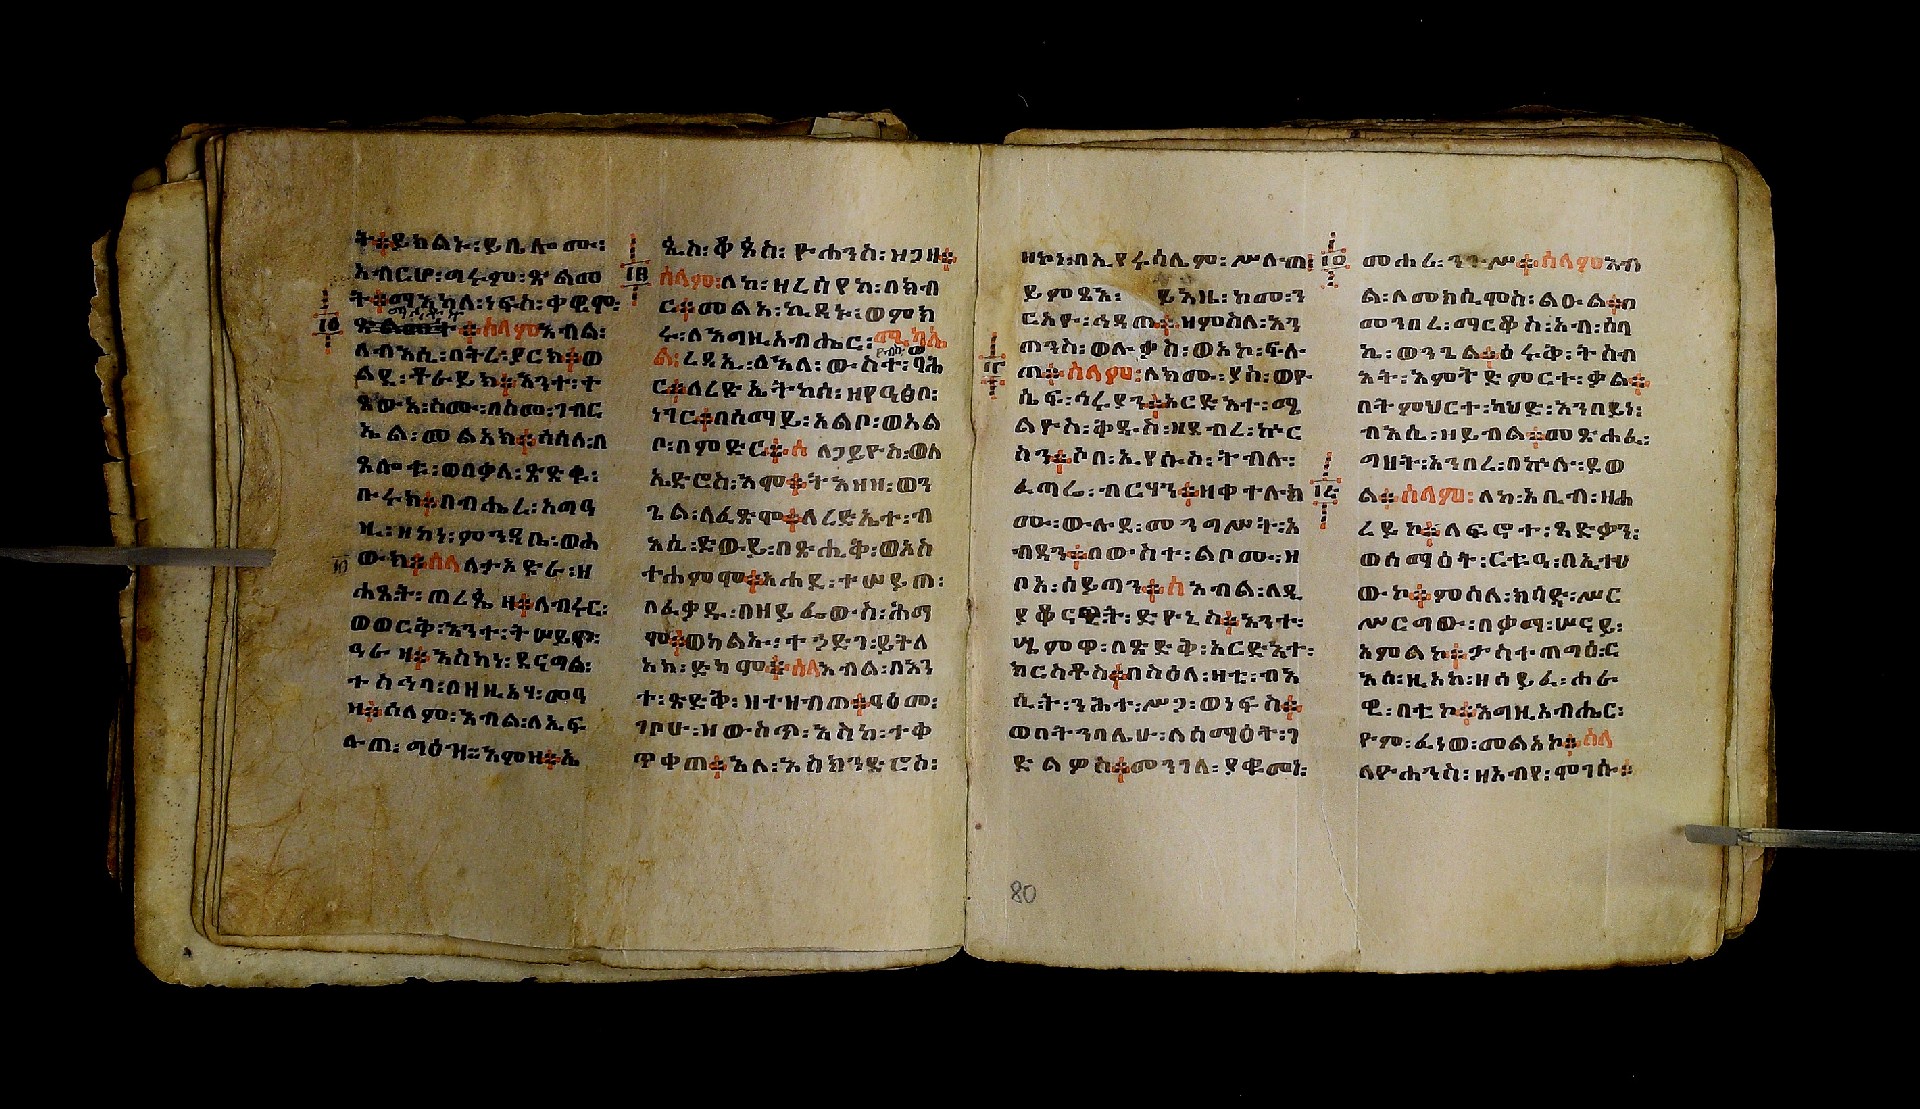 ት፨ይክልኑ፡ይቤሎሙ፡
አብርሆ፡ጣሩም፡ጽልመ
ት፨ማእከለ፡ነፍስ፡ቀዊሞ፡
፨ሰላም፡እብል፡
ለብእሲ፡በትረ፡ያርክ፨ወ
ጸውአ፡ስሙ፡በስመ፡ገብር
ኤል፡መልአክ፨ሰሰለ፡በ
ጸሎቱ፡ወበቃለ፡ጽድቁ፡
ቡሩክ፨በብሔረ፡አግዓ
ዚ፡ዘኮነ፡ምንዳቤ፡ወሐ
ውክ፨ሰላለታእድራ፡ዘ
ወወርቅ፡እንተ፡ትሠይጥ፡
ዓራዝ፨እስከነ፡ደርግል፡
ዝ፨ሰላም፡እብል፡ለኢፍ
ሬጠ፡ግዕዝ፡እምዝ፨ኤ
ጲስ፡ቆጶስ፡ዮሐንስ፡ዝጋዘ፨
ሰላም፡ለከ፡ዘረሰየከ፡በክብ
ር፨መልአ፡ኪዳኑ፡ወምክ
ሩ፡ለእግዚአብሔር፡ሚካኤ
ል፡ረዳኢ፡ለእለ፡ውስተ፡ባሕ
ር፨ለረድኤትከሰ፡ዘየዓፅቦ፡
ነገር፨በሰማይ፡አልቦ፡ወአል
ቦ፡በምድር፨ሰ ለጋይዮስ፡ወለ
ኤድሮስ፡እሞ፨ተአዘዘ፡ወን
ጌል፡ለፈጽሞ፨ለረድኤተ፡ብ
እሲ፡ድውይ፡በጽሒቅ፡ወአስ
ተሐምሞ፨አሐደ፡ተሠይጠ፡
በፈቃዱ፡በዘይፌውስ፡ሕማ
ሞ፨ወካልኡ፡ተኃድገ፡ይትለ
አክ፡ድካሞ፨ሰላእብል፡በእን
ተ፡ጽድቅ፡ዘተዘብጠ፨ዓፅመ፡
ገቦሁ፡ዝውስጥ፡እስከ፡ተቀ
ጥቀጠ፨እለ፡እስክንድሮስ፡
ዘኮነ፡በኢየሩሳሌም፡ሥሉጠ፡
ይምጻእ፡ ይእዜ፡ከመ፡ን
ርአዮ፡ኅዳጠ፨ዝምስለ፡አን
ጠንስ፡ወሉቃስ፡ወአኮ፡ፍሉ
ጠ፨ሰላም፡ለክሙ፡ያስ፡ወዮ
ሴፍ፡ኅሩያን፨አርድእተ፡ሚ
ልዮስ፡ቅዱስ፡ዘደብረ፡ኵር
ስን፨ሶበ፡ኢየሱስ፡ትብሉ፡
ፈጣሬ፡ብርሃን፨ዘቀተሉክ
ሙ፡ውሉደ፡መንግሥት፡አ
ብዳን፨በውስተ፡ልቦሙ፡ዘ
ቦአ፡ሰይጣን፨ሰ እብል፡ለዲ
ሢምዎ፡በጽድቅ፡አርድእተ፡
ክርስቶስ፨በስዕለ፡ዘቲ፡ብእ
ሲት፡ንሕተ፡ሥጋ፡ወነፍስ፨
ወበትንባሌሁ፡ለሰማዕት፡ገ
ድልዎስ፨መንገለ፡ያቄመነ፡
መሐሪ፡ንጉሥ፨ሰላምእብ
ል፡ለመክሲሞስ፡ልዑል፨በ
መንበረ፡ማርቆስ፡አብ፡ሰባ
ኪ፡ወንጌል፨ዕሩቅ፡ትስብ
እት፡እምትድምርተ፡ቃል፨
በትምህርተ፡ካህድ፡እንበይነ፡
ብእሲ፡ዘይብል፨መጽሐፈ፡
ግዘት፡አንበረ፡በኵሉ፡ደወ
ል፨ሰላም፡ለከ፡አቢብ፡ዘሐ
ረይኮ፨ለፍኖተ፡ጻድቃን፡
ወሰማዕት፡ርቱዓ፡በኢተሀ
ውኮ፨ምስለ፡ክሳዱ፡ሥር
ሥርግው፡በቃማ፡ሠናይ፡
አምልኮ፨ታስተጠግዕ፡ር
እሰ፡ዚአከ፡ዘሰይፈ፡ሐራ
ዊ፡በቲኮ፨እግዚአብሔር፡
ዮም፡ፈነወ፡መልአኮ፨ሰላ
ለዮሐንስ፡ዘአብየ፡ሞገሱ፨
80